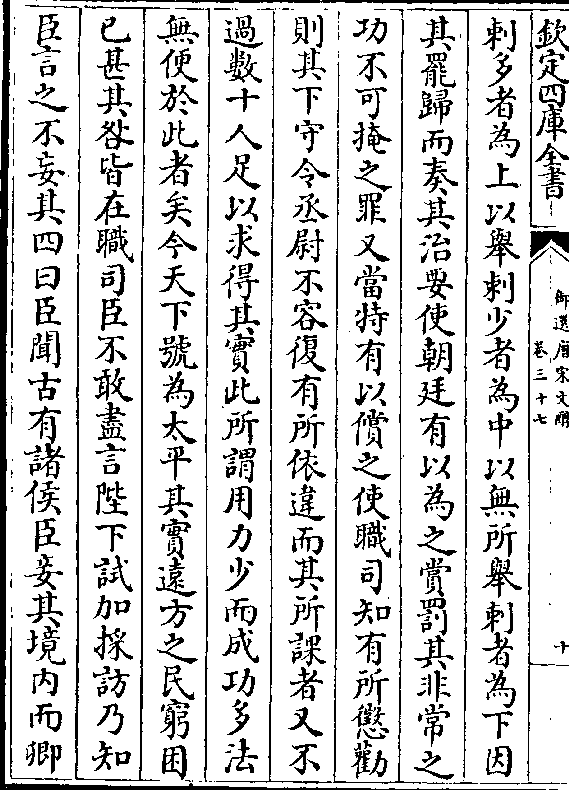 欽定四庫全書
御選唐宋文醇
卷三十七
十
刺多者為上以舉刺少者為中以無所舉刺者為下因
其罷歸而奏其治要使朝廷有以為之賞罰其非常之
功不可掩之罪又當特有以償之使職司知有所懲勸
則其下守令丞尉不容復有所依違而其所課者又不
過數十人足以求得其實此所謂用力少而成功多法
無便於此者矣今天下號為太平其實遠方之民窮困
已甚其咎皆在職司臣不敢盡言陛下試加採訪乃知
臣言之不妄其四曰臣聞古有諸侯臣妾其境內而卿